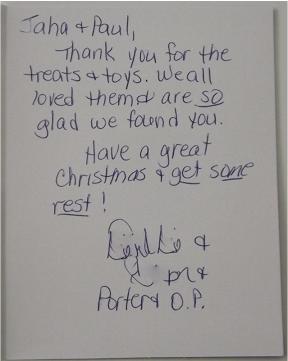 Jaha & Paul,
Thank you for the
treats & toys. We all
loved them & are so
glad we found you.
Have a great
Christmas & get some
rest!
&
&
Porter & D.P.